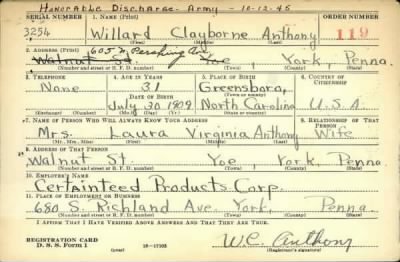 Honorable Discharge. Army - 10-12-45
SERIAL NUMBER 1. NAME (Print) ORDER NUMBER
3254 Willard Clayborne Anthony 119
(First) (Middle) (Last)
2. ADDRESS (Print) 605 N. Pershing Av.
Walnut St. Yoe, York, Penna.
(Number and street or R. F. D. number) (Town) (County) (State)
3. TELEPHONE 4. AGE IN YEARS 5. PLACE OF BIRTH 6. COUNTRY OF CITIZENSHIP
None 31 Greensboro,
DATE OF BIRTH (Town or county)
July 30 1909 North Carolina U.S.A.
(Exchange) (Number) (Mo.) (Day) (Yr.) (State or country)
7. NAME OF PERSON WHO WILL ALWAYS KNOW YOUR ADDRESS 8. RELATIONSHIP OF THAT PERSON
Mrs. Laura Virginia Anthony Wife
(Mr., Mrs., Miss) (First) (Middle) (Last)
9. ADDRESS OF THAT PERSON
Walnut St. Yoe, York, Penna
(Number and street or R. F. D. number) (Town) (County) (State)
10. EMPLOYER'S NAME
Certainteed Products Corp.
11. PLACE OF EMPLOYMENT OR BUSINESS
680 S. Richland Ave. York, Penna.
(Number and street or R. F. D. number) (Town) (County) (State)
I AFFIRM THAT I HAVE VERIFIED ABOVE ANSWERS AND THAT THEY ARE TRUE.
REGISTRATION CARD
D. S. S. Form 1 (over) 16-17105 W.C. Anthony
(Registrant's signature)